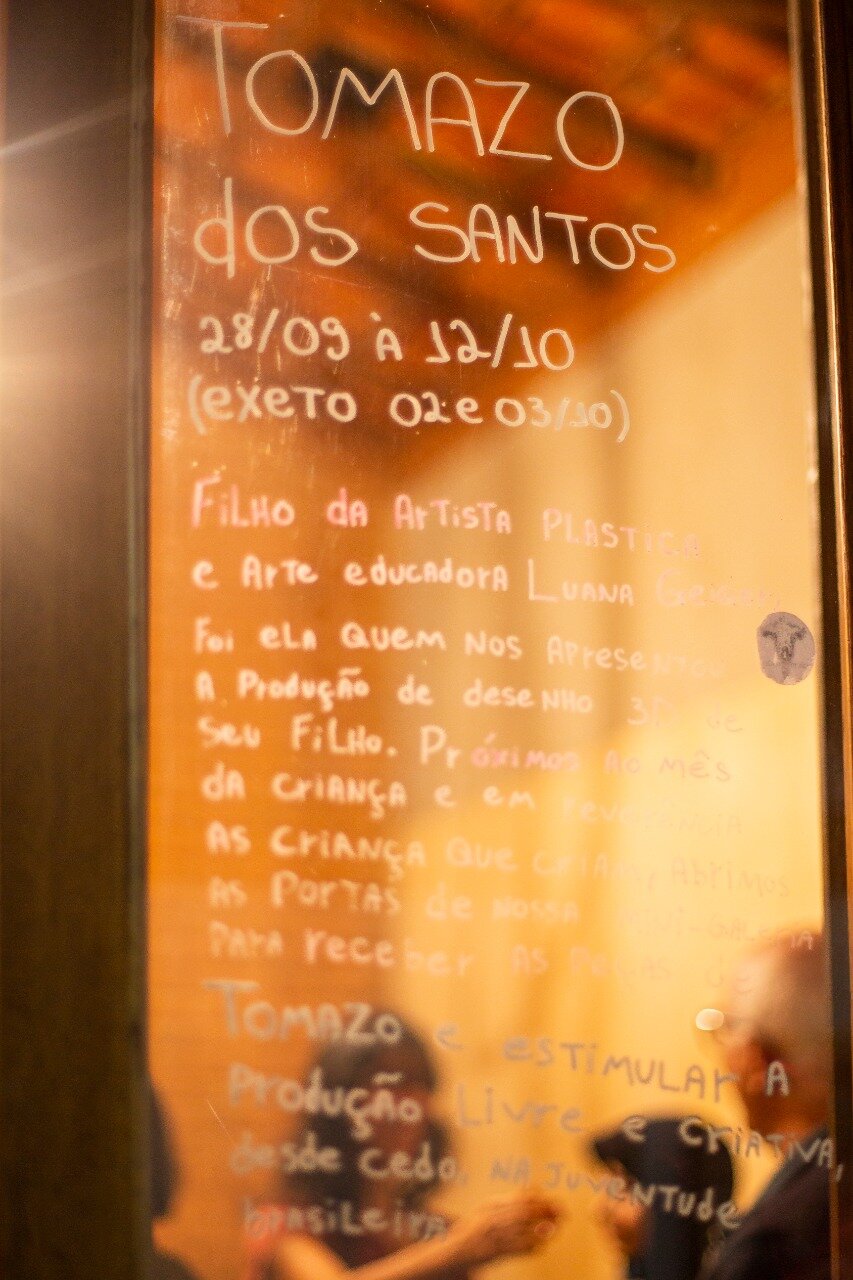 TOMAZO
dos SANTOS
28/09 à 12/10
(exeto 02 e 03/10)
Filho da Artista Plastica
e Arte educadora Luana
Foi ela quem nos apresentou
a produção de desenho 3D de
seu filho. Próximos ao mês
da criança e em reverência
as criança que criam, abrimos
as portas de nossa mini-galeria
para receber as peças de
Tomazo e estimular a
produção livre e criativa,
desde cedo, na juventude
brasileira